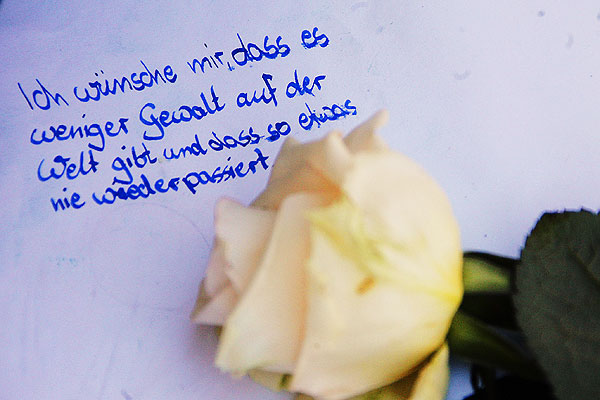 Ich wünsche mir, dass es
weniger Gewalt auf der
Welt gibt und dass so etwas
nie wieder passiert